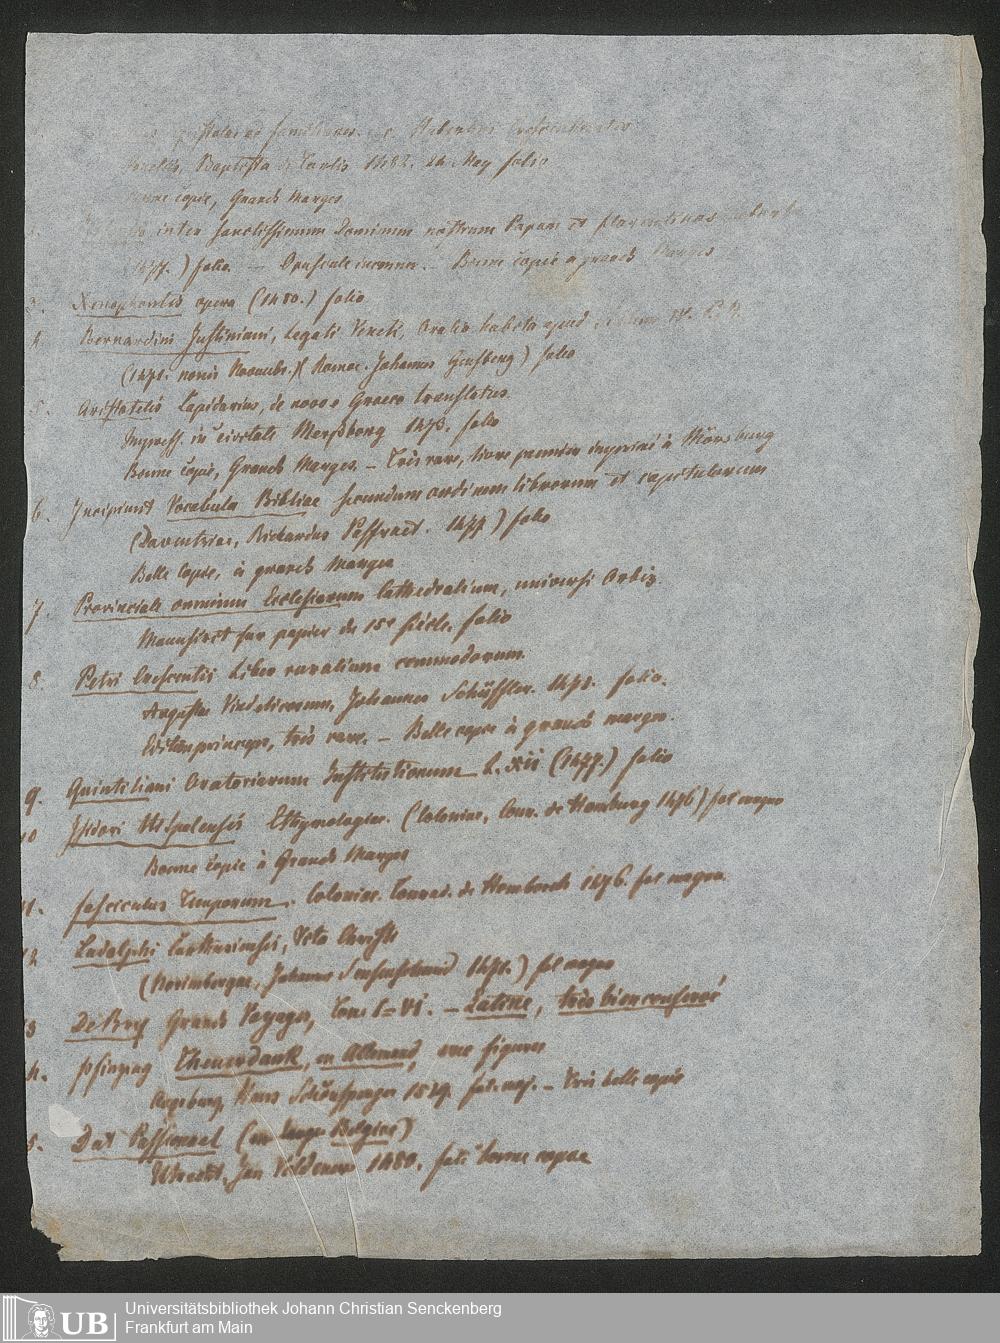 epistolas ad familiares.
Baptista de Tortis 1482. May folio
Bonne Copie, Grands Marges
inter sanctissimum Dominum nostrum Papam et florentinos
1477.) folio. — Opuscule inconnu. — Bonne Copie à grands Marges
3. Xenophontis opera (1480.) folio
4. Bernardini Justiniani, Legati Veneti, Oratio habita apud
(1471. nonis Novembr.) (Romae. Johannes Gensberg) folio
5. Aristotelis Lapidarius, de novo e Graeco translatus.
Impress. in civitate Merssborg 1473. folio
Bonne Copie, Grands Marges. — Très rare, livre premier imprimé à Mörsburg
6. Incipiunt Vocabula Bibliae secundum ordinem librorum et capitulorum
(Daventriae, Richardus Paffraet. 1477) folio
Belle Copie, à grands Marges
7. Provinciale omnium Ecclesiarum Cathedralium, universi Orbis.
Manuscrit sur papier du 15e siècle. folio
8. Petri Crescentii Liber ruralium commodorum.
Augustae Vindelicorum, Johannes Schüssler. 1471. folio.
Edition princeps, très rare. — Belle copie à grands marges.
9. Quintiliani Oratoriarum Institutionum L. XII (1477.) folio
10 Isidori Hispalensis Ethymologiae. (Coloniae, Conr. de Homburg 1476) fol magno
Bonne Copie à Grands Marges
11. fasciculus Temporum. Coloniae. Conrad. de Homborch 1476. fol magno.
12 Ludolphi Carthusiensis, Vita Christi
(Norimbergae, Johannes Sensenschmid 1471.) fol magno
13 De Bry Grands Voyages, Tom I–VI. — Latine, très bien conservé
14. Pfinzing Theuerdank, en Allemand, avec figures
Augsburg, Hans Schönsperger 1519. fol. maj. — Très belle copie
15. Dat Passionael (en langue Belgique)
Utrecht, Jan Veldener 1480. fol. bonne copie
Universitätsbibliothek Johann Christian Senckenberg
Frankfurt am Main
UB